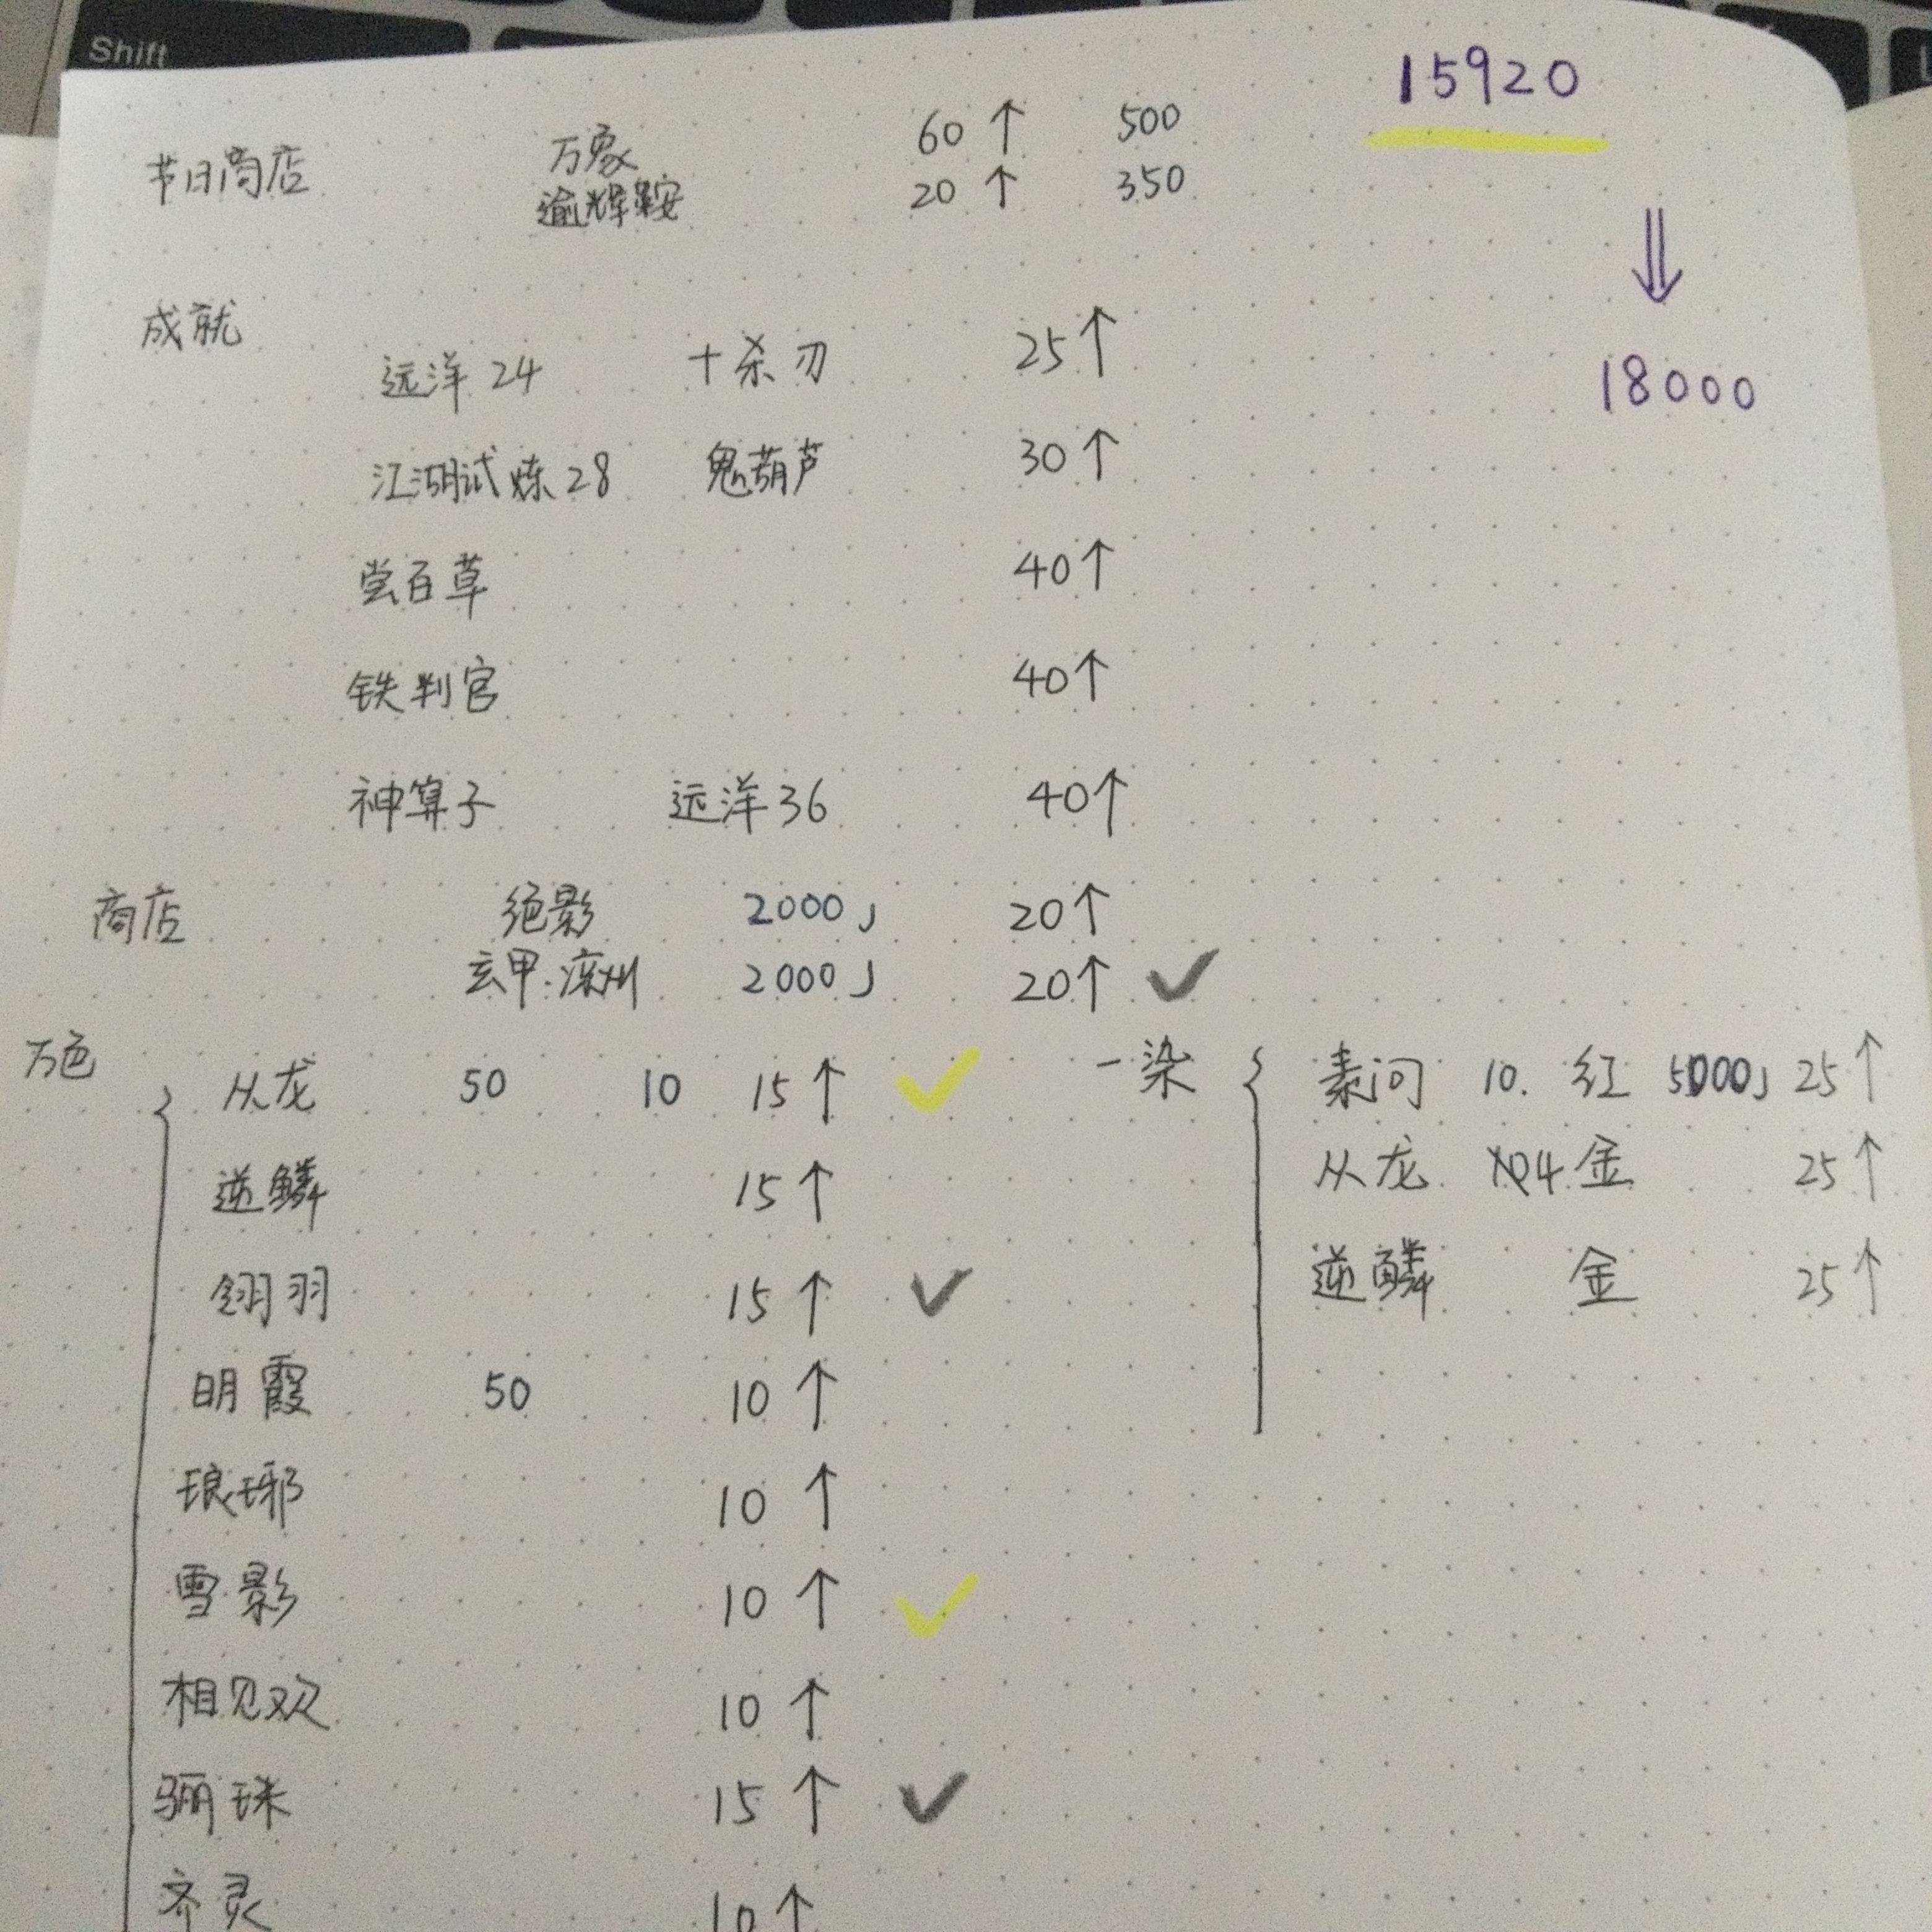 Shift
15920
节日商店 万象 60↑ 500
逾辉鞍 20↑ 350
⇓
18000
成就
远洋24 十杀刃 25↑
江湖试炼28 鬼葫芦 30↑
尝百草 40↑
铁判官 40↑
神算子 远洋36 40↑
商店 绝影 2000J 20↑
玄甲·滦州 2000J 20↑ ✓
万色
从龙 50 10 15↑ ✓
逆鳞 15↑
翎羽 15↑ ✓
明霞 50 10↑
琅琊 10↑
雪影 10↑ ✓
相见欢 10↑
骊珠 15↑ ✓
齐灵 10↑
一染
素问 10. 红 5000J 25↑
从龙 4 金 25↑
逆鳞 金 25↑